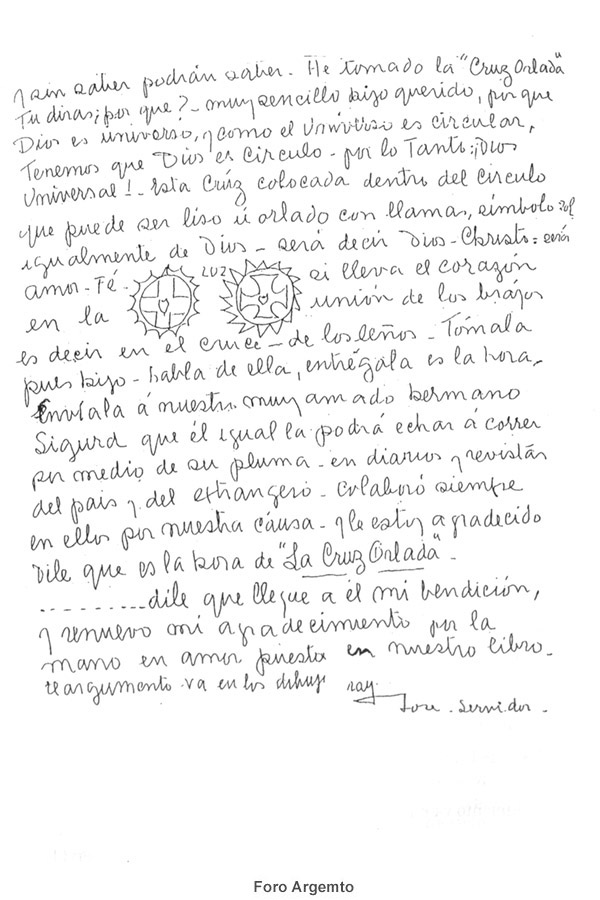 y sin saber podrán saber - He tomado la "Cruz Orlada"
Tu diras ¿por que? - muy sencillo hijo querido, por que
Dios es universo, y como el Universo es circular,
Tenemos que Dios es Circulo - por lo Tanto: ¡Dios
Universal! - Esta Crúz colocada dentro del circulo
que puede ser liso ú orlado con llamas, símbolo sol
igualmente de Dios - será decir Dios - Christo = será
amor - Fé - LUZ si lleva el corazón
en la unión de los brazos
es decir en el cruce - de los leños - Tómala
pues hijo - habla de ella, entrégala es la hora,
Envíala á nuestro muy amado hermano
Sigurd que él igual la podrá echar á correr
por medio de su pluma - en diarios y revistas
del pais y del extrangero - colaboró siempre
en ellos por nuestra cáusa - y le estoy agradecido
Dile que es la hora de "La Cruz Orlada" -
..........dile que llegue a él mi bendición,
y renuevo mi agradecimiento por la
mano en amor puesta en nuestro libro -
te argumento va en los dibuj ray
Jose - Servidor -
Foro Argemto